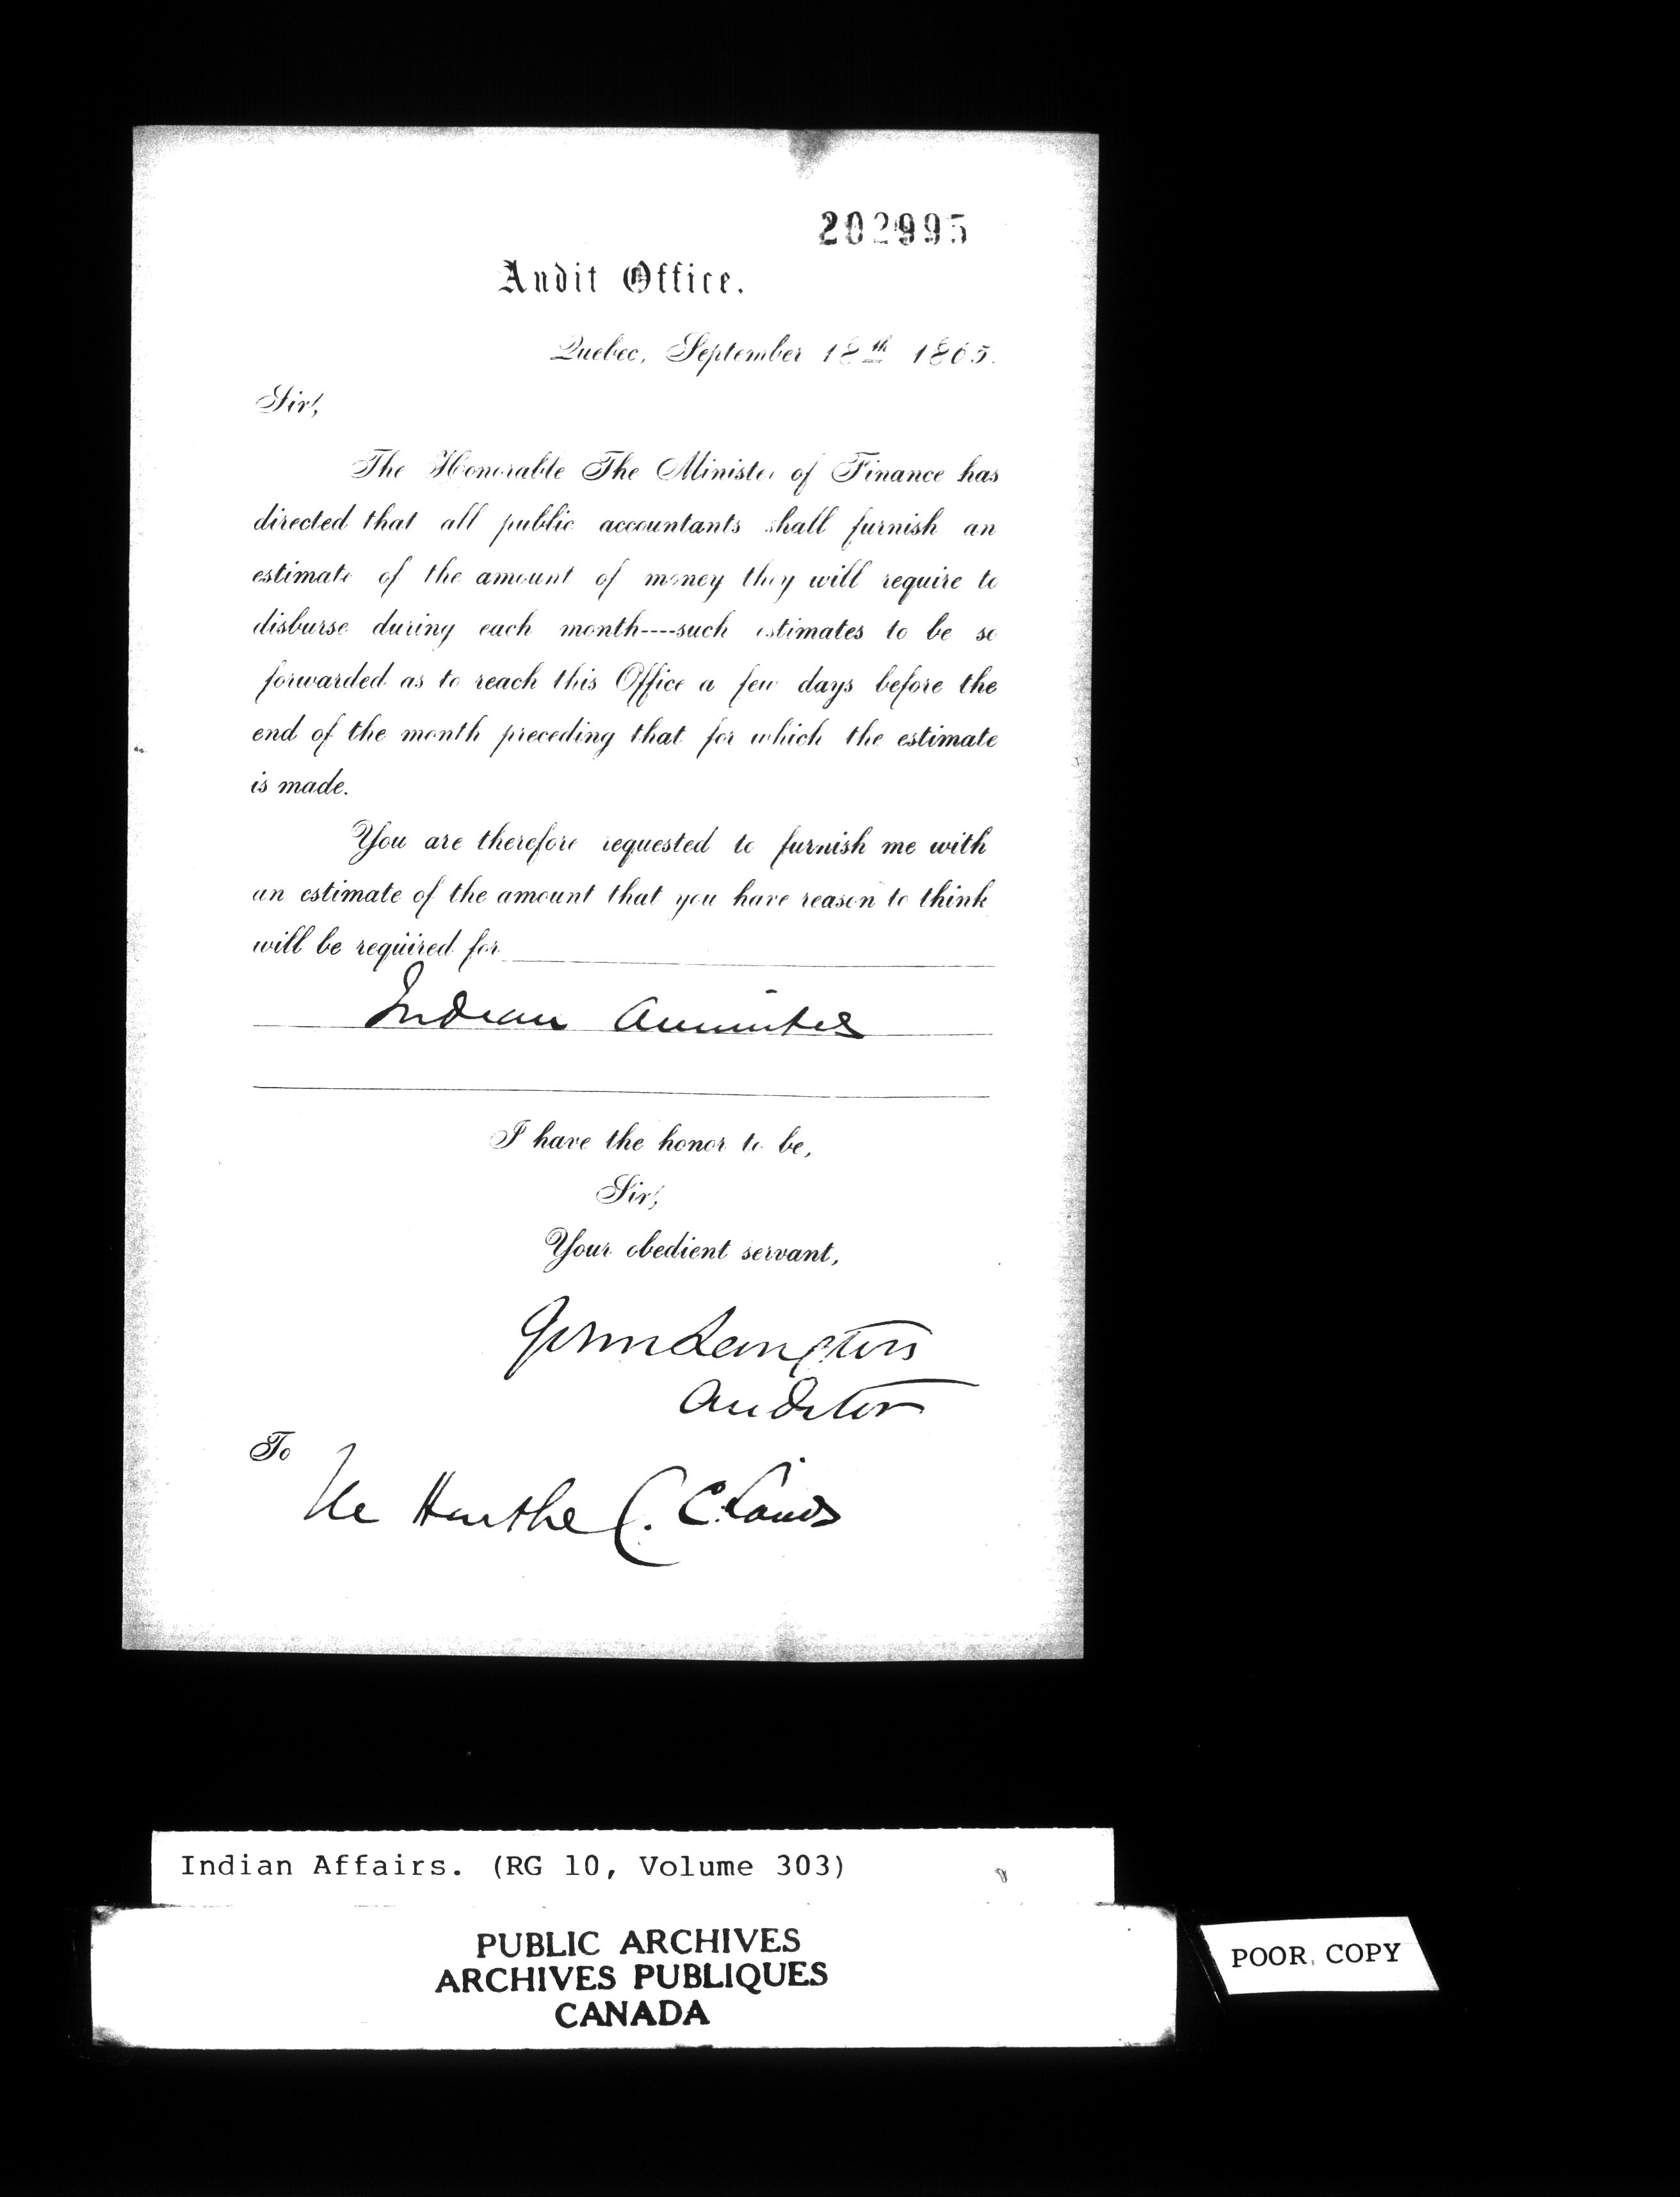 202995
Audit Office.
Quebec, September 18th 1865.
Sir,
The Honorable The Minister of Finance has
directed that all public accountants shall furnish an
estimate of the amount of money they will require to
disburse during each month----such estimates to be so
forwarded as to reach this Office a few days before the
end of the month preceding that for which the estimate
is made.
You are therefore requested to furnish me with
an estimate of the amount that you have reason to think
will be required for
Indian Annuities
I have the honor to be,
Sir,
Your obedient servant,
John Langton
Auditor
To
The Honble C. C. Lands
Indian Affairs. (RG 10, Volume 303)
PUBLIC ARCHIVES
ARCHIVES PUBLIQUES
CANADA
POOR COPY